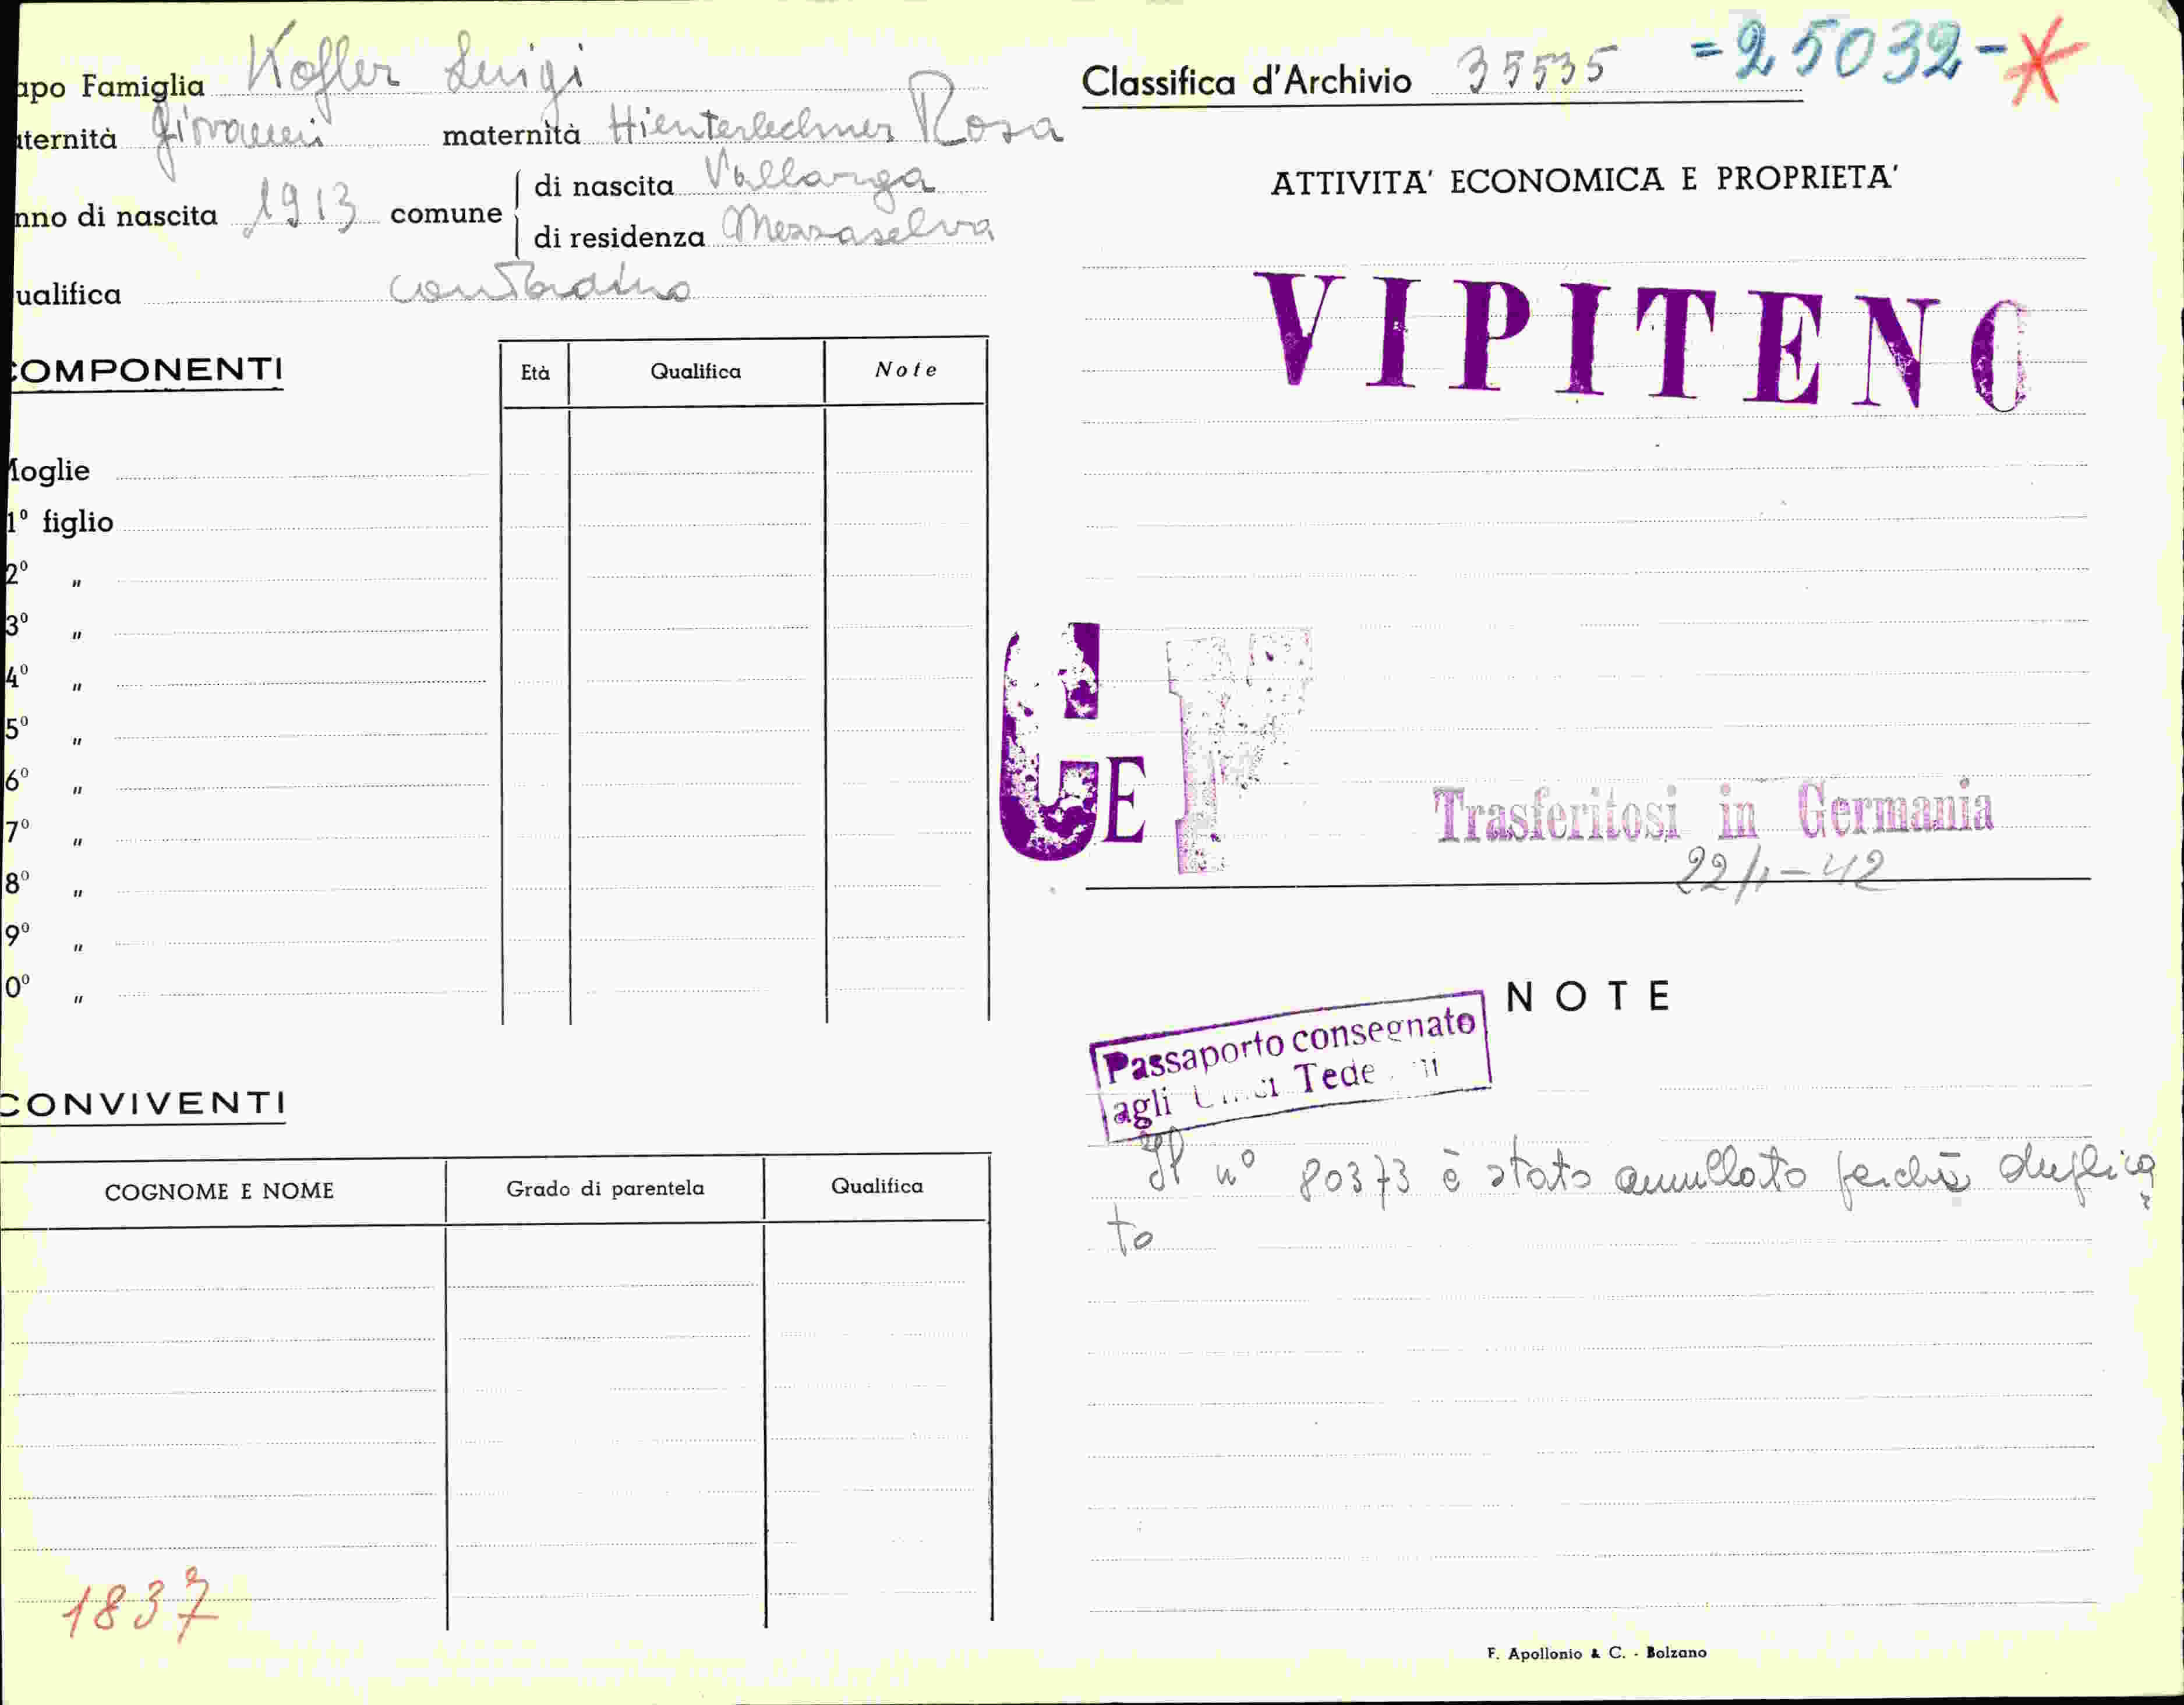 apo Famiglia Kofler Luigi
aternità Giovanni maternità Hienterlechner Rosa
nno di nascita 1913 comune di nascita Vallarga
di residenza Mezzaselva
ualifica contadino
COMPONENTI Età Qualifica Note
Moglie
1º figlio
2º "
3º "
4º "
5º "
6º "
7º "
8º "
9º "
0º "
CONVIVENTI
COGNOME E NOME Grado di parentela Qualifica
1837
Classifica d'Archivio 35535 =25032-*
ATTIVITA' ECONOMICA E PROPRIETA'
VIPITENO
GE F
Trasferitosi in Germania
22/1-42
NOTE
Passaporto consegnato
agli
Il nº 80373 è stato annullato perchè duplica
to
F. Apollonio & C. - Bolzano